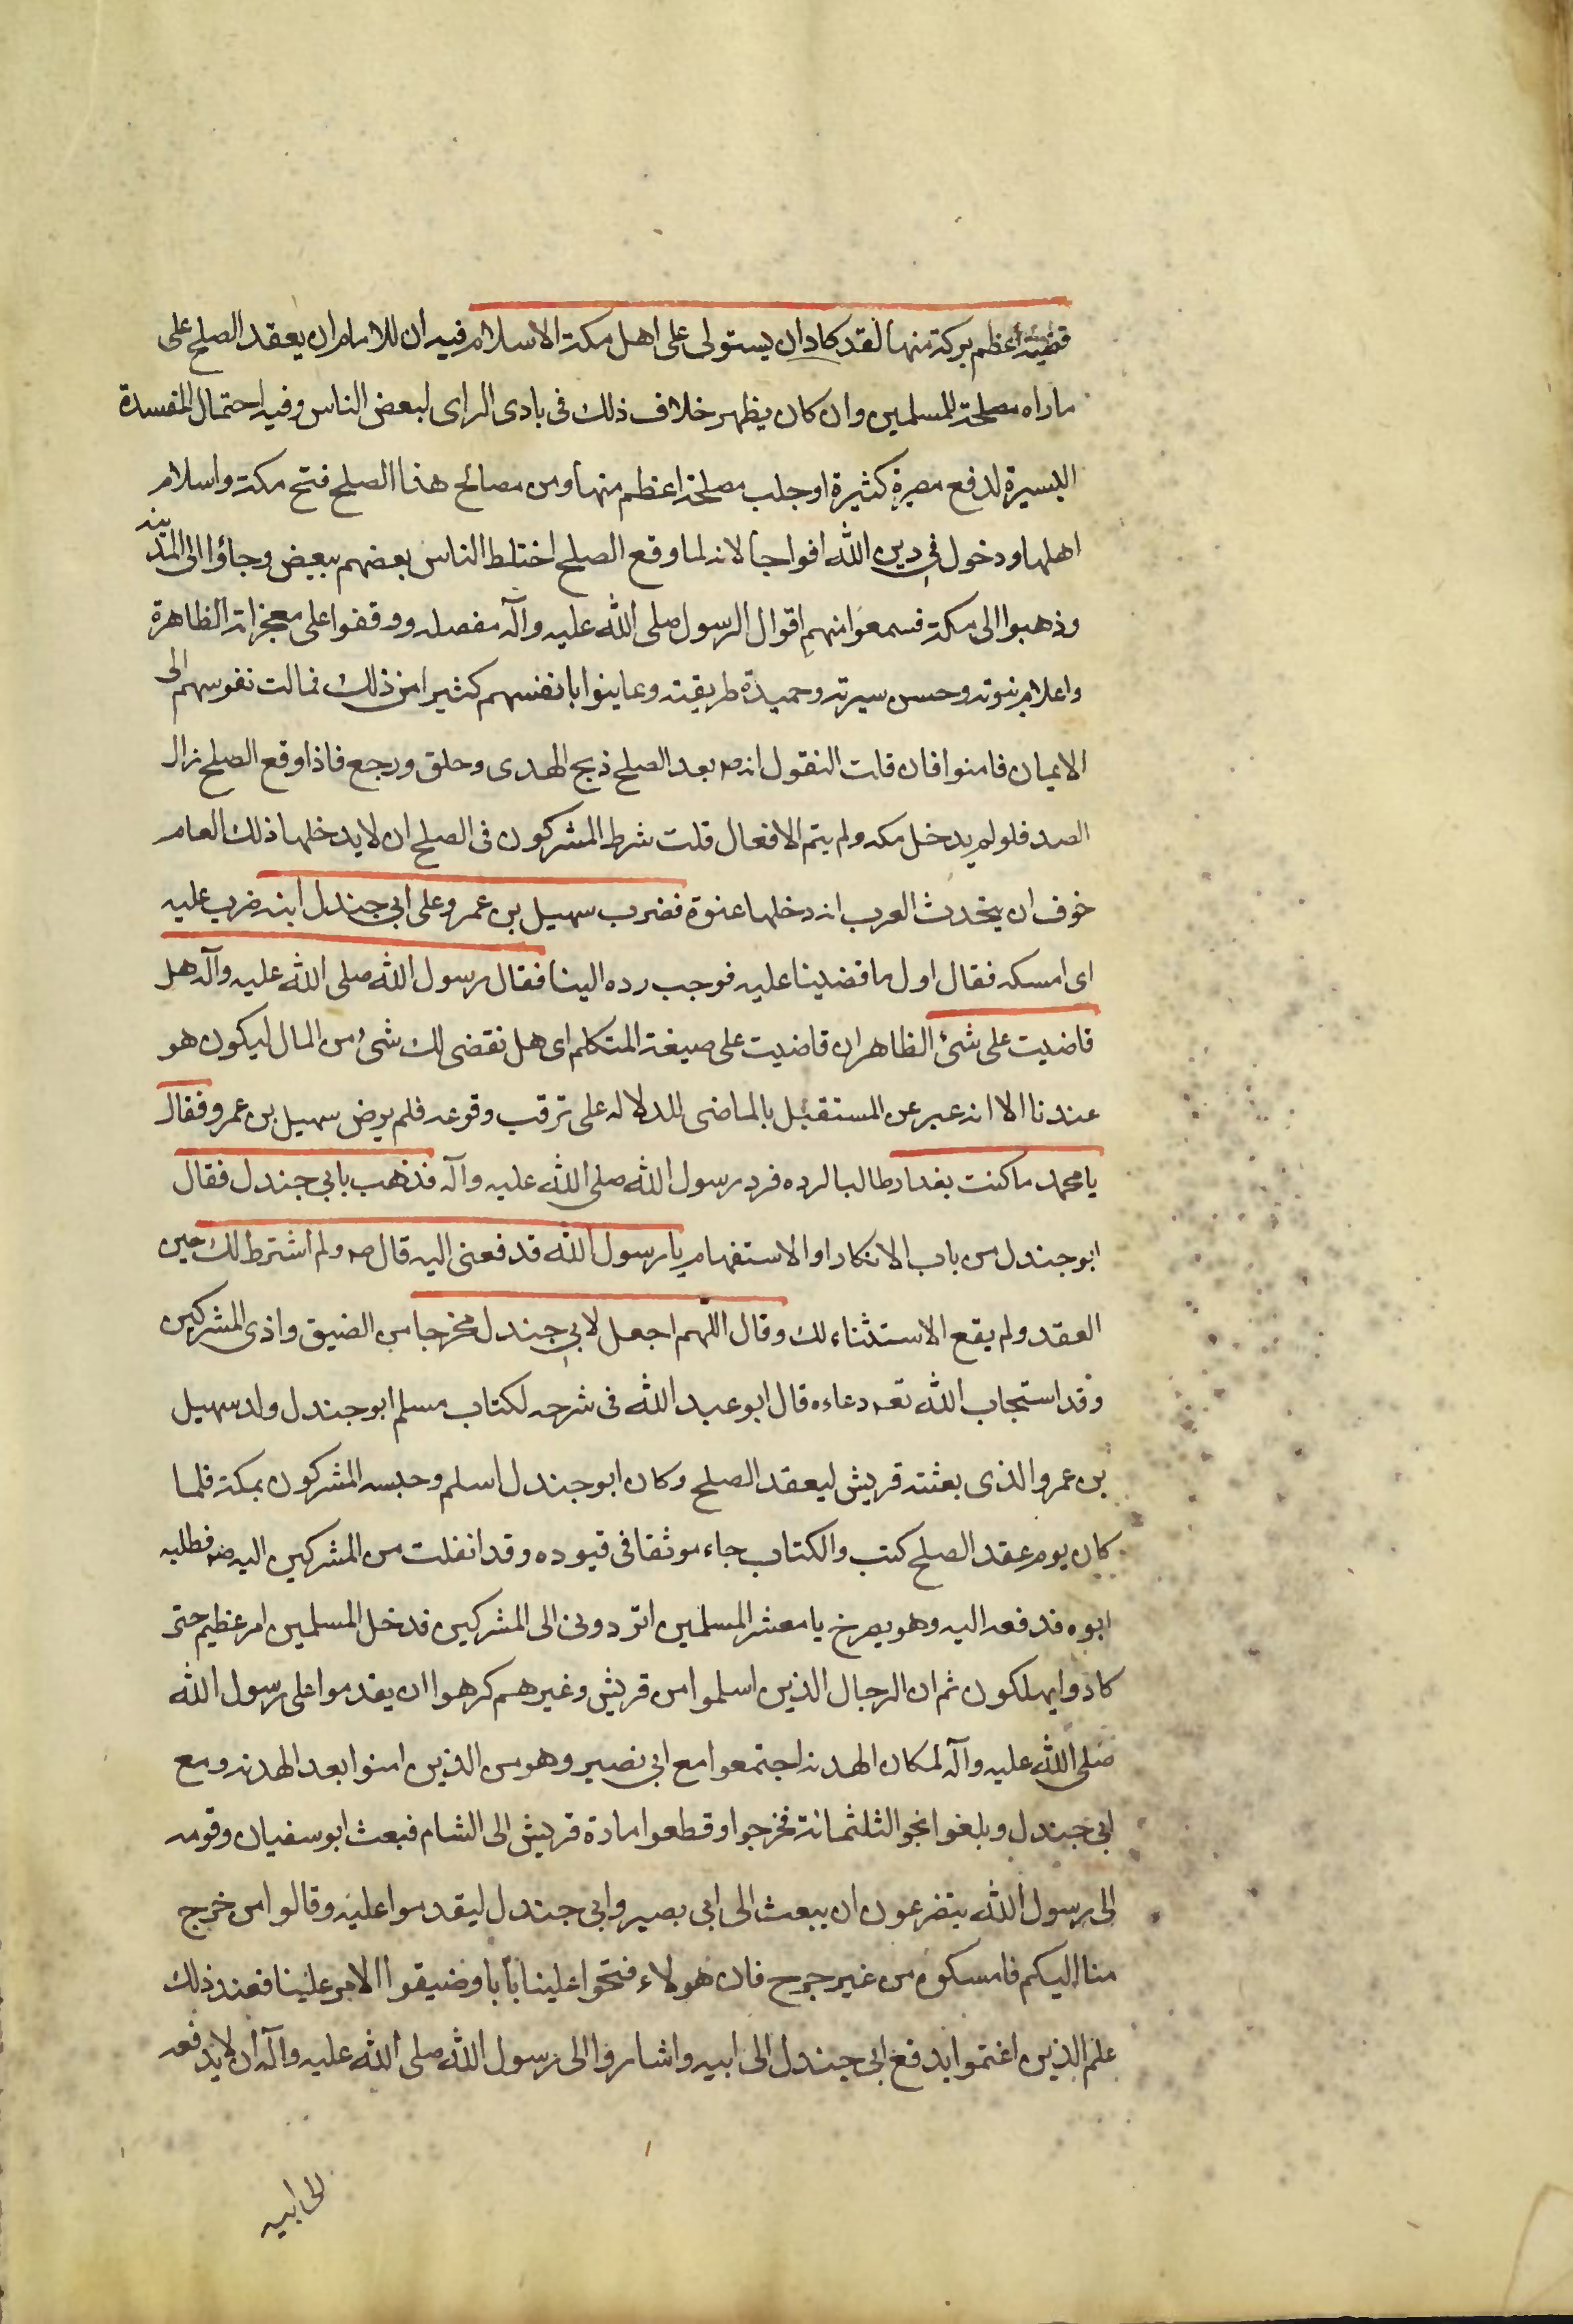 قضية أعظم بركة منها لقد كاد ان يستولى على اهل مكة الاسلام فيه ان للامام ان يعقد الصلح على
ماراه مصلحة للمسلمين وان كان يظهر خلاف ذلك فى بادى الراى لبعض الناس وفيه احتمال المفسدة
اليسيرة لدفع مضرة كثيرة او جلب مصلحة اعظم منها ومن مصالح هذا الصلح فتح مكة واسلام
اهلها ودخول فى دين الله افواجا لانه لما وقع الصلح اختلط الناس بعضهم ببعيض وجاؤا الى المدينه
وذهبوا الى مكة فسمعوا منهم اقوال الرسول صلى الله عليه وآله مفصله ووقفوا على معجزاته الظاهرة
واعلام نبوته وحسن سيرته وحميدة طريقته وعاينوا بانفسهم كثيرا من ذلك فمالت نفوسهم الى
الايمان فامنوا فان قلت النقول انه ص بعد الصلح ذبح الهدى وحلق ورجع فاذا وقع الصلح زال
الصد فلو لم يدخل مكه ولم يتم الافعال قلت شرط المشركون فى الصلح ان لا يدخلها ذلك العام
خوف ان يتحدث العرب انه دخلها عنوة فضرب سهيل بن عمرو على ابى جندل ابنه ضرب عليه
اى امسكه فقال اول ما قضينا عليه فوجب رده الينا فقال رسول الله صلى الله عليه وآله هل
قاضيت على شئ الظاهر ان قاضيت على صيغة المتكلم اى هل نقضى لك شئ من المال ليكون هو
عندنا الا انه عبر عن المستقبل بالماضى للدلاله على ترقب وقوعه فلم يرض سهيل بن عمرو فقال
يا محمد ما كنت بغدار طالبا لرده فرد رسول الله صلى الله عليه وآله فذهب بابى جندل فقال
ابو جندل من باب الانكار او الاستفهام يا رسول الله تدفعنى اليه قال ص ولم اشترط لك حين
العقد ولم يقع الاستثناء لك وقال اللهم اجعل لابى جندل مخرجا من الضيق واذى المشركين
وقد استجاب الله تعه دعاءه قال ابو عبد الله فى شرحه لكتاب مسلم ابو جندل ولد سهيل
بن عمرو الذى بعثته قريش ليعقد الصلح وكان ابو جندل اسلم وحبسه المشركون بمكة فلما
كان يوم عقد الصلح كتب والكتاب جاء موثقا فى قيوده وقد انفلت من المشركين اليه ص فطلبه
ابوه فدفعه اليه وهو يصرخ يا معشر المسلمين اتردونى الى المشركين فدخل المسلمين امر عظيم حتى
كادوا يهلكون ثم ان الرجال الذين اسلموا من قريش وغيرهم كرهوا ان يقدموا على رسول الله
صلى الله عليه وآله لمكان الهدنه اجتمعوا مع ابى نصير وهو من الذين امنوا بعد الهدنه ومع
ابى جندل وبلغوا نحو الثلثمائة فخرجوا وقطعوا مادة قريش الى الشام فبعث ابو سفيان وقومه
الى رسول الله يتضرعون ان يبعث الى ابى بصير وابى جندل ليقدموا عليه وقالوا من خرج
منا اليكم فامسكوه من غير حرج فان هولاء فتحوا علينا بابا وضيقوا الامر علينا فعند ذلك
علم الذين اغتموا بدفع ابى جندل الى ابيه واشاروا الى رسول الله صلى الله عليه وآله ان لا يدفعه
الى ابيه